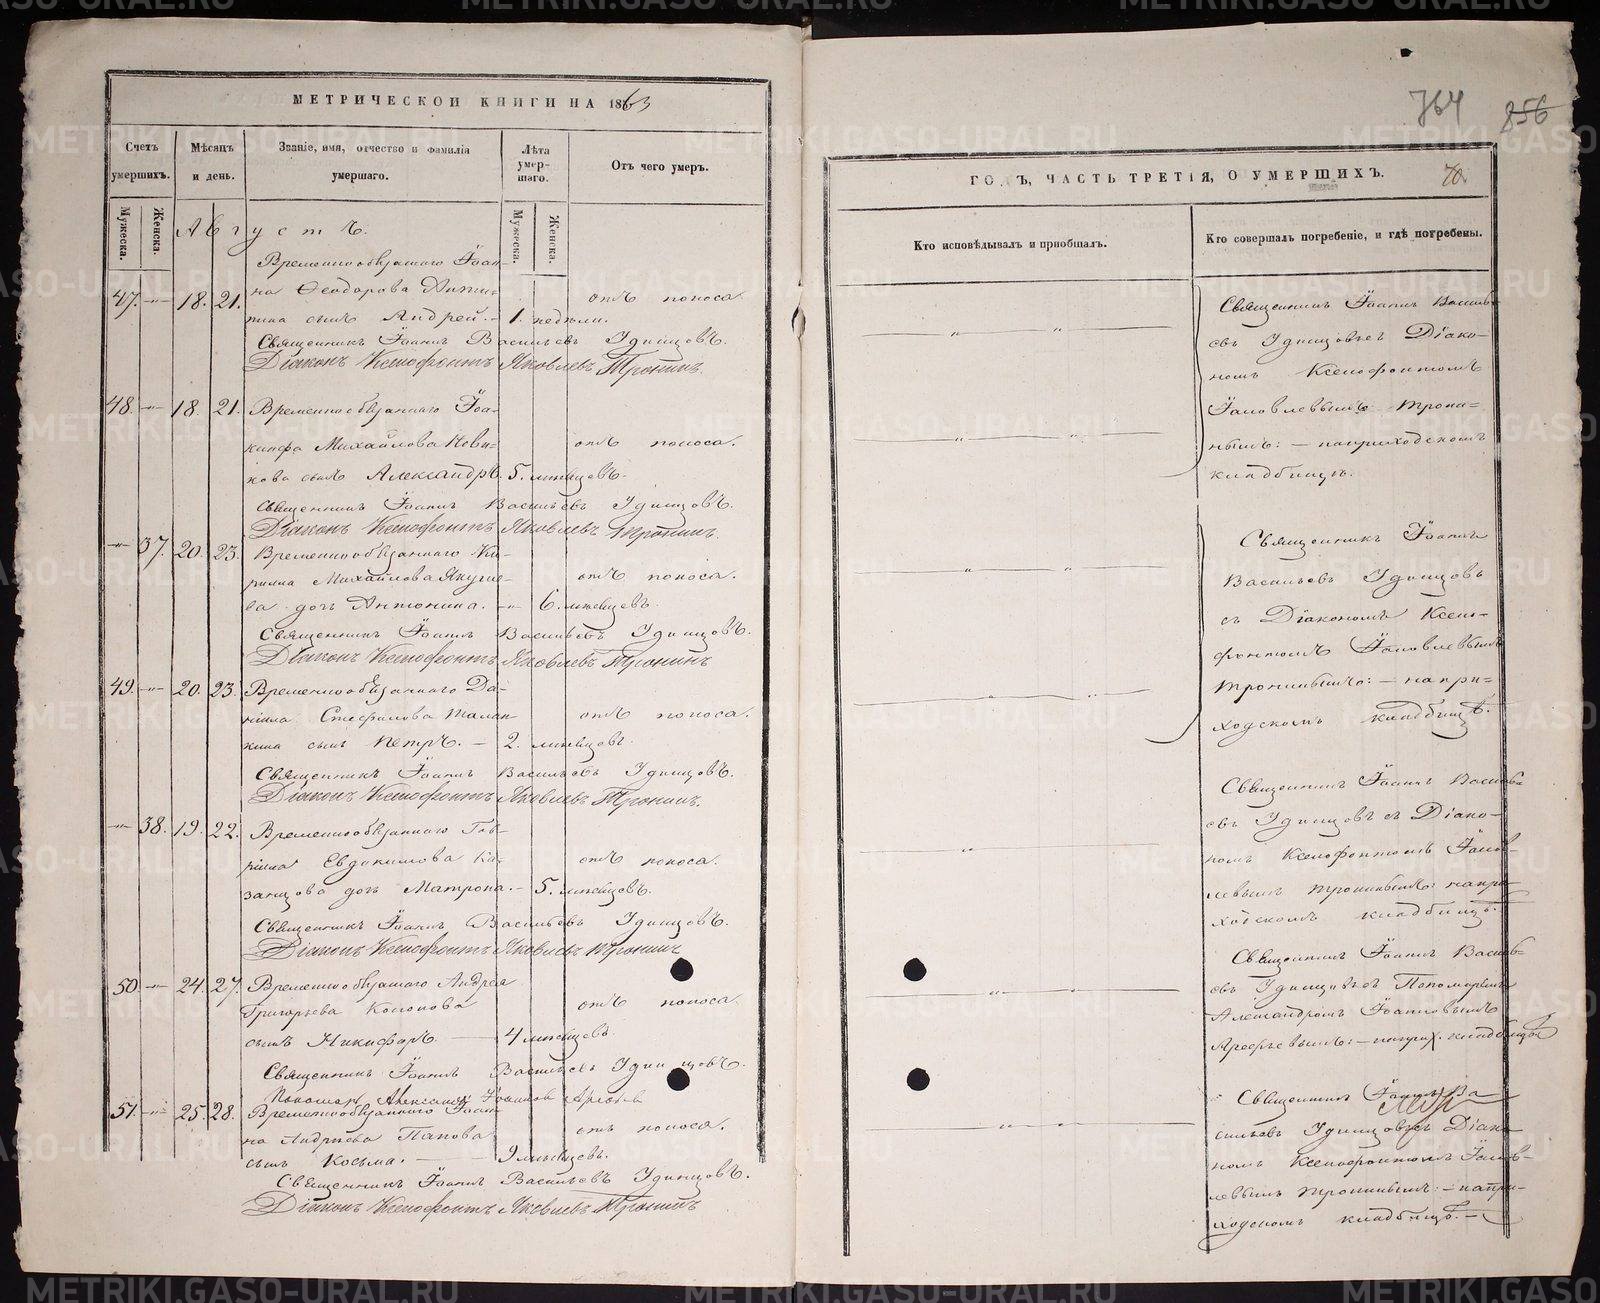 МЕТРИЧЕСКОЙ КНИГИ НА 1863
Счетъ умершихъ.
Мѣсяцъ и день.
Званіе, имя, отчество и фамилія умершаго.
Лѣта умершаго.
Отъ чего умеръ.
Мужеска.
Женска.
Мужеска.
Женска.
Августъ.
Временнообязаннаго Іоан-
47. -"- 18. 21. на Ѳеодорова от поноса.
сынъ Андрей. — 1. недѣли.
Священникъ Іоаннъ Васильевъ Удинцовъ.
Діаконъ Ксенофонтъ Яковлевъ Тронинъ.
48. -"- 18. 21. Временнообязаннаго Іоа-
кинфа Михайлова от поноса.
сынъ Александръ. 5. мѣсяцевъ.
Священникъ Іоаннъ Васильевъ Удинцовъ.
Діаконъ Ксенофонтъ Яковлевъ Тронинъ.
-"- 37. 20. 23. Временнообязаннаго Ки-
рилла Михайлова Якуше- отъ поноса.
ва дочь Антонина. -"- 6. мѣсяцевъ.
Священникъ Іоаннъ Васильевъ Удинцовъ.
Діаконъ Ксенофонтъ Яковлевъ Тронинъ
49. -"- 20. 23. Временнообязаннаго Да-
ніила отъ поноса.
сынъ Петръ. — 2. мѣсяцевъ.
Священникъ Іоаннъ Васильевъ Удинцовъ.
Діаконъ Ксенофонтъ Яковлевъ Тронинъ.
-"- 38. 19. 22. Временнообязаннаго Гав-
ріила Евдокимова Ка- отъ поноса.
занцова дочь Матрона. — 5. мѣсяцевъ.
Священникъ Іоаннъ Васильевъ Удинцовъ.
Діаконъ Ксенофонтъ Яковлевъ Тронинъ
50. -"- 24. 27. Временнообязаннаго Андрея
Григорьева Кононова отъ поноса
сынъ Никифоръ. — 4 мѣсяцевъ
Священникъ Іоаннъ Васильевъ Удинцовъ.
Пономарь Александръ Іоанновъ Арефьевъ
51. -"- 25. 28. Временнообязаннаго Іоан-
на Андреева Папова отъ поноса.
сынъ Косьма. — 9 мѣсяцевъ.
Священникъ Іоаннъ Васильевъ Удинцовъ.
Діаконъ Ксенофонтъ Яковлевъ Тронинъ
764 856
ГОДЪ, ЧАСТЬ ТРЕТІЯ, О УМЕРШИХЪ.
70.
Кто исповѣдывалъ и пріобщалъ.
Кто совершалъ погребеніе, и гдѣ погребены.
Священникъ Іоаннъ Василь-
евъ Удинцовъ съ Діако-
номъ Ксенофонтомъ
Іаковлевымъ Трони-
нымъ: — на приходскомъ
кладбищѣ.
Священникъ Іоаннъ
Васильевъ Удинцовъ
съ Діакономъ Ксено-
фонтомъ Іаковлевымъ
Тронинымъ: — на при-
ходскомъ кладбищѣ.
Священникъ Іоаннъ Василь-
евъ Удинцовъ съ Діако-
номъ Ксенофонтомъ Іаков-
левымъ Тронинымъ: на при-
ходскомъ кладбищѣ.
Священникъ Іоаннъ Василь-
евъ Удинцовъ съ Пономаремъ
Александромъ Іоанновымъ
Арефьевымъ: — на прих. кладбищѣ
Священникъ Іоаннъ Ва
сильевъ Удинцовъ съ Діако-
номъ Ксенофонтомъ Іаков-
левымъ Тронинымъ: — на при-
ходскомъ кладбищѣ. —
METRIKI.GASO-URAL.RU